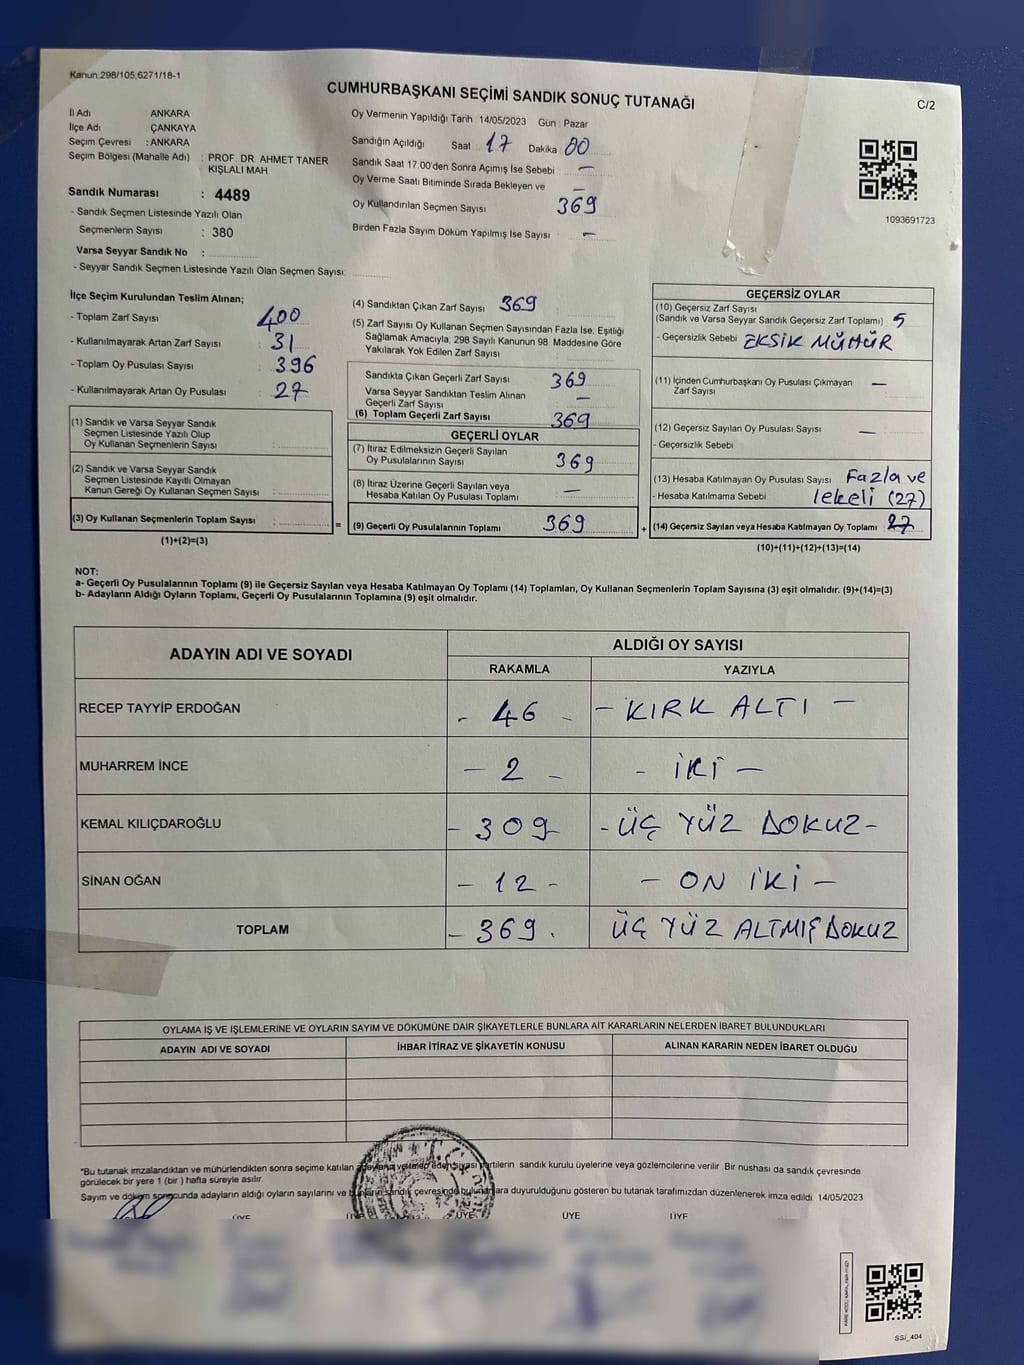 Kanun:298/105;6271/18-1
CUMHURBAŞKANI SEÇİMİ SANDIK SONUÇ TUTANAĞI
C/2
İl Adı : ANKARA
İlçe Adı : ÇANKAYA
Seçim Çevresi : ANKARA
Seçim Bölgesi (Mahalle Adı) : PROF. DR. AHMET TANER
KIŞLALI MAH.
Sandık Numarası : 4489
- Sandık Seçmen Listesinde Yazılı Olan
Seçmenlerin Sayısı : 380
Varsa Seyyar Sandık No :
- Seyyar Sandık Seçmen Listesinde Yazılı Olan Seçmen Sayısı:
Oy Vermenin Yapıldığı Tarih 14/05/2023 Gün : Pazar
Sandığın Açıldığı Saat 17 Dakika 00
Sandık Saat 17:00'den Sonra Açımış İse Sebebi —
Oy Verme Saati Bitiminde Sırada Bekleyen ve —
Oy Kullandırılan Seçmen Sayısı 369
Birden Fazla Sayım Döküm Yapılmış İse Sayısı —
1093691723
İlçe Seçim Kurulundan Teslim Alınan;
- Toplam Zarf Sayısı : 400
- Kullanılmayarak Artan Zarf Sayısı : 31
- Toplam Oy Pusulası Sayısı : 396
- Kullanılmayarak Artan Oy Pusulası : 27
(1) Sandık ve Varsa Seyyar Sandık
Seçmen Listesinde Yazılı Olup
Oy Kullanan Seçmenlerin Sayısı :
(2) Sandık ve Varsa Seyyar Sandık
Seçmen Listesinde Kayıtlı Olmayan
Kanun Gereği Oy Kullanan Seçmen Sayısı :
(3) Oy Kullanan Seçmenlerin Toplam Sayısı : =
(1)+(2)=(3)
(4) Sandıktan Çıkan Zarf Sayısı : 369
(5) Zarf Sayısı Oy Kullanan Seçmen Sayısından Fazla İse, Eşitliği
Sağlamak Amacıyla, 298 Sayılı Kanunun 98. Maddesine Göre
Yakılarak Yok Edilen Zarf Sayısı :
Sandıkta Çıkan Geçerli Zarf Sayısı : 369
Varsa Seyyar Sandıktan Teslim Alınan
Geçerli Zarf Sayısı : —
(6) Toplam Geçerli Zarf Sayısı : 369
GEÇERLİ OYLAR
(7) İtiraz Edilmeksizin Geçerli Sayılan
Oy Pusulalarının Sayısı : 369
(8) İtiraz Üzerine Geçerli Sayılan veya
Hesaba Katılan Oy Pusulası Toplamı : —
(9) Geçerli Oy Pusulalarının Toplamı : 369 +
GEÇERSİZ OYLAR
(10) Geçersiz Zarf Sayısı
(Sandık ve Varsa Seyyar Sandık Geçersiz Zarf Toplamı) : 5
- Geçersizlik Sebebi : EKSİK MÜHÜR
(11) İçinden Cumhurbaşkanı Oy Pusulası Çıkmayan
Zarf Sayısı : —
(12) Geçersiz Sayılan Oy Pusulası Sayısı : —
- Geçersizlik Sebebi
(13) Hesaba Katılmayan Oy Pusulası Sayısı : Fazla ve
- Hesaba Katılmama Sebebi : lekeli (27)
(14) Geçersiz Sayılan veya Hesaba Katılmayan Oy Toplamı : 27
(10)+(11)+(12)+(13)=(14)
NOT:
a- Geçerli Oy Pusulalarının Toplamı (9) ile Geçersiz Sayılan veya Hesaba Katılmayan Oy Toplamı (14) Toplamları, Oy Kullanan Seçmenlerin Toplam Sayısına (3) eşit olmalıdır. (9)+(14)=(3)
b- Adayların Aldığı Oyların Toplamı, Geçerli Oy Pusulalarının Toplamına (9) eşit olmalıdır.
ADAYIN ADI VE SOYADI
ALDIĞI OY SAYISI
RAKAMLA YAZIYLA
RECEP TAYYİP ERDOĞAN - 46 - - KIRK ALTI -
MUHARREM İNCE - 2 - - İKİ -
KEMAL KILIÇDAROĞLU - 309 - - ÜÇ YÜZ DOKUZ -
SİNAN OĞAN - 12 - - ON İKİ -
TOPLAM - 369 . ÜÇ YÜZ ALTMIŞ DOKUZ
OYLAMA İŞ VE İŞLEMLERİNE VE OYLARIN SAYIM VE DÖKÜMÜNE DAİR ŞİKAYETLERLE BUNLARA AİT KARARLARIN NELERDEN İBARET BULUNDUKLARI
ADAYIN ADI VE SOYADI İHBAR İTİRAZ VE ŞİKAYETİN KONUSU ALINAN KARARIN NEDEN İBARET OLDUĞU
*Bu tutanak imzalandıktan ve mühürlendikten sonra seçime katılan adaylara ve talep eden siyasi partilerin sandık kurulu üyelerine veya gözlemcilerine verilir. Bir nüshası da sandık çevresinde
görülecek bir yere 1 (bir ) hafta süreyle asılır.
Sayım ve döküm sonucunda adayların aldığı oyların sayılarını ve bunların sandık çevresinde bulunanlara duyurulduğunu gösteren bu tutanak tarafımızdan düzenlenerek imza edildi. 14/05/2023
ÜYE ÜYE ÜYE ÜYE ÜYE
SSİ_404